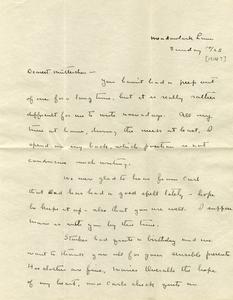 Meadowlark Inn
Sunday
Dearest Mütterchen —
You haven't had a peep out
of me for a long time, but it is really rather
difficult for me to write nowadays. All my
time at home, during the week at least, I
spend on my back, which position is not
conducive much writing.
We were glad to hear from Carl
that Dad has had a good spell lately - hope
he keeps it up - also that you are well. I suppose
is with you by this time.
had quite a birthday and we
want to thank you all for your sensible presents
His clothes are fine, Overalls the hope
of my heart, and Carl's check quite an